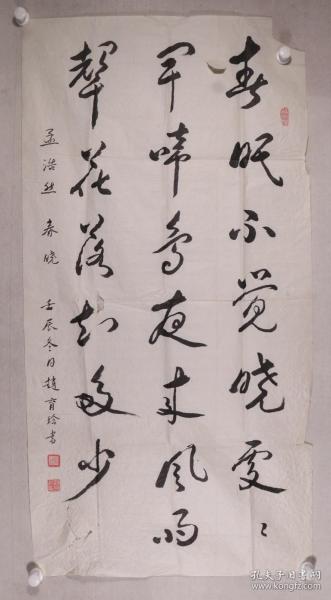 春眠不觉晓處〻
闻啼鸟夜来风雨
聲花落知多少
孟浩然 春晓 壬辰冬月趙育玲书
孔夫子旧书网
www.kongfz.com